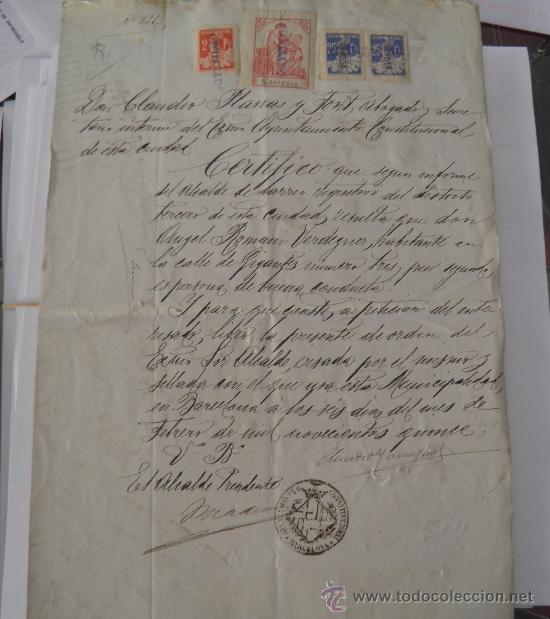 Don Claudio Planas y Font, Abogado y Secre-
tario interino del Excmo Ayuntamiento Constitucional
de esta ciudad.
Certifico que segun informe
del Alcalde de barrio respectivo del distrito
tercero de esta ciudad, resulta que don
Angel Romani Verdeguer, habitante en
la calle de Gigantes número tres, piso segundo
es persona de buena conducta.
Y para que conste, a petición del inte-
resado, libro la presente de orden del
Excmo Sor Alcalde, visada por el mismo y
sellada con el que usa esta Municipalidad,
en Barcelona a los seis dias del mes de
Febrero de mil novecientos quince.
Vo Bo
El Alcalde Presidente
todocoleccion
www.todocoleccion.net